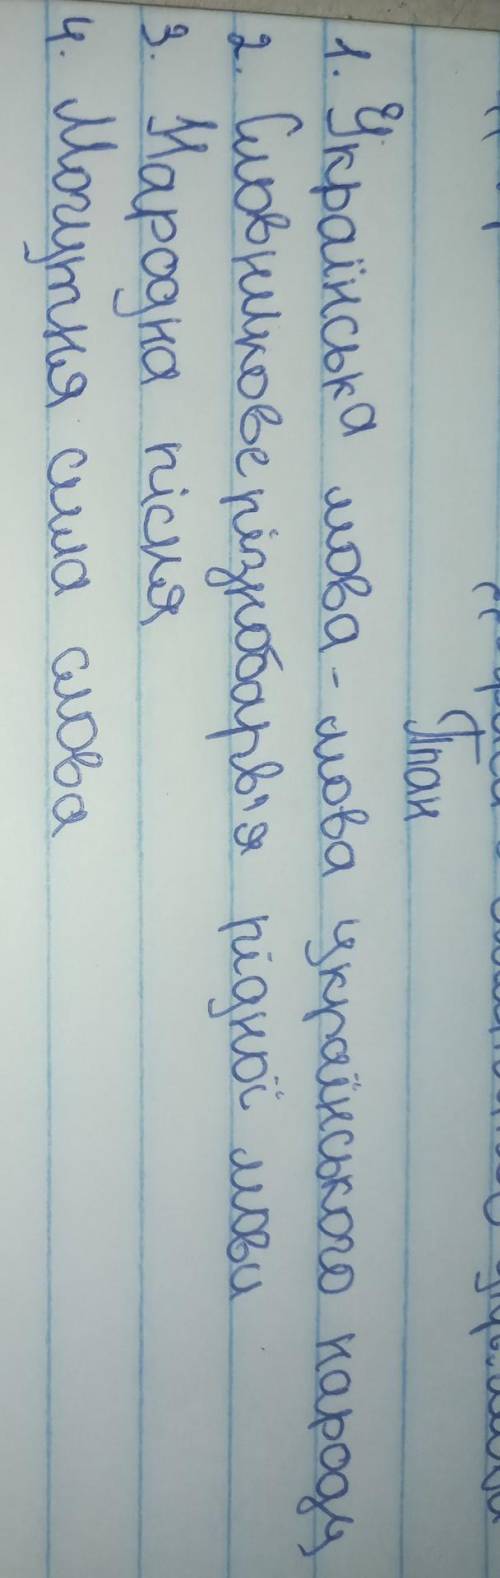 План
1. Українська мова - мова українського народу
2. Словникове різнобарв'я рідної мови
3. Народна пісня
4. Могутня сила слова